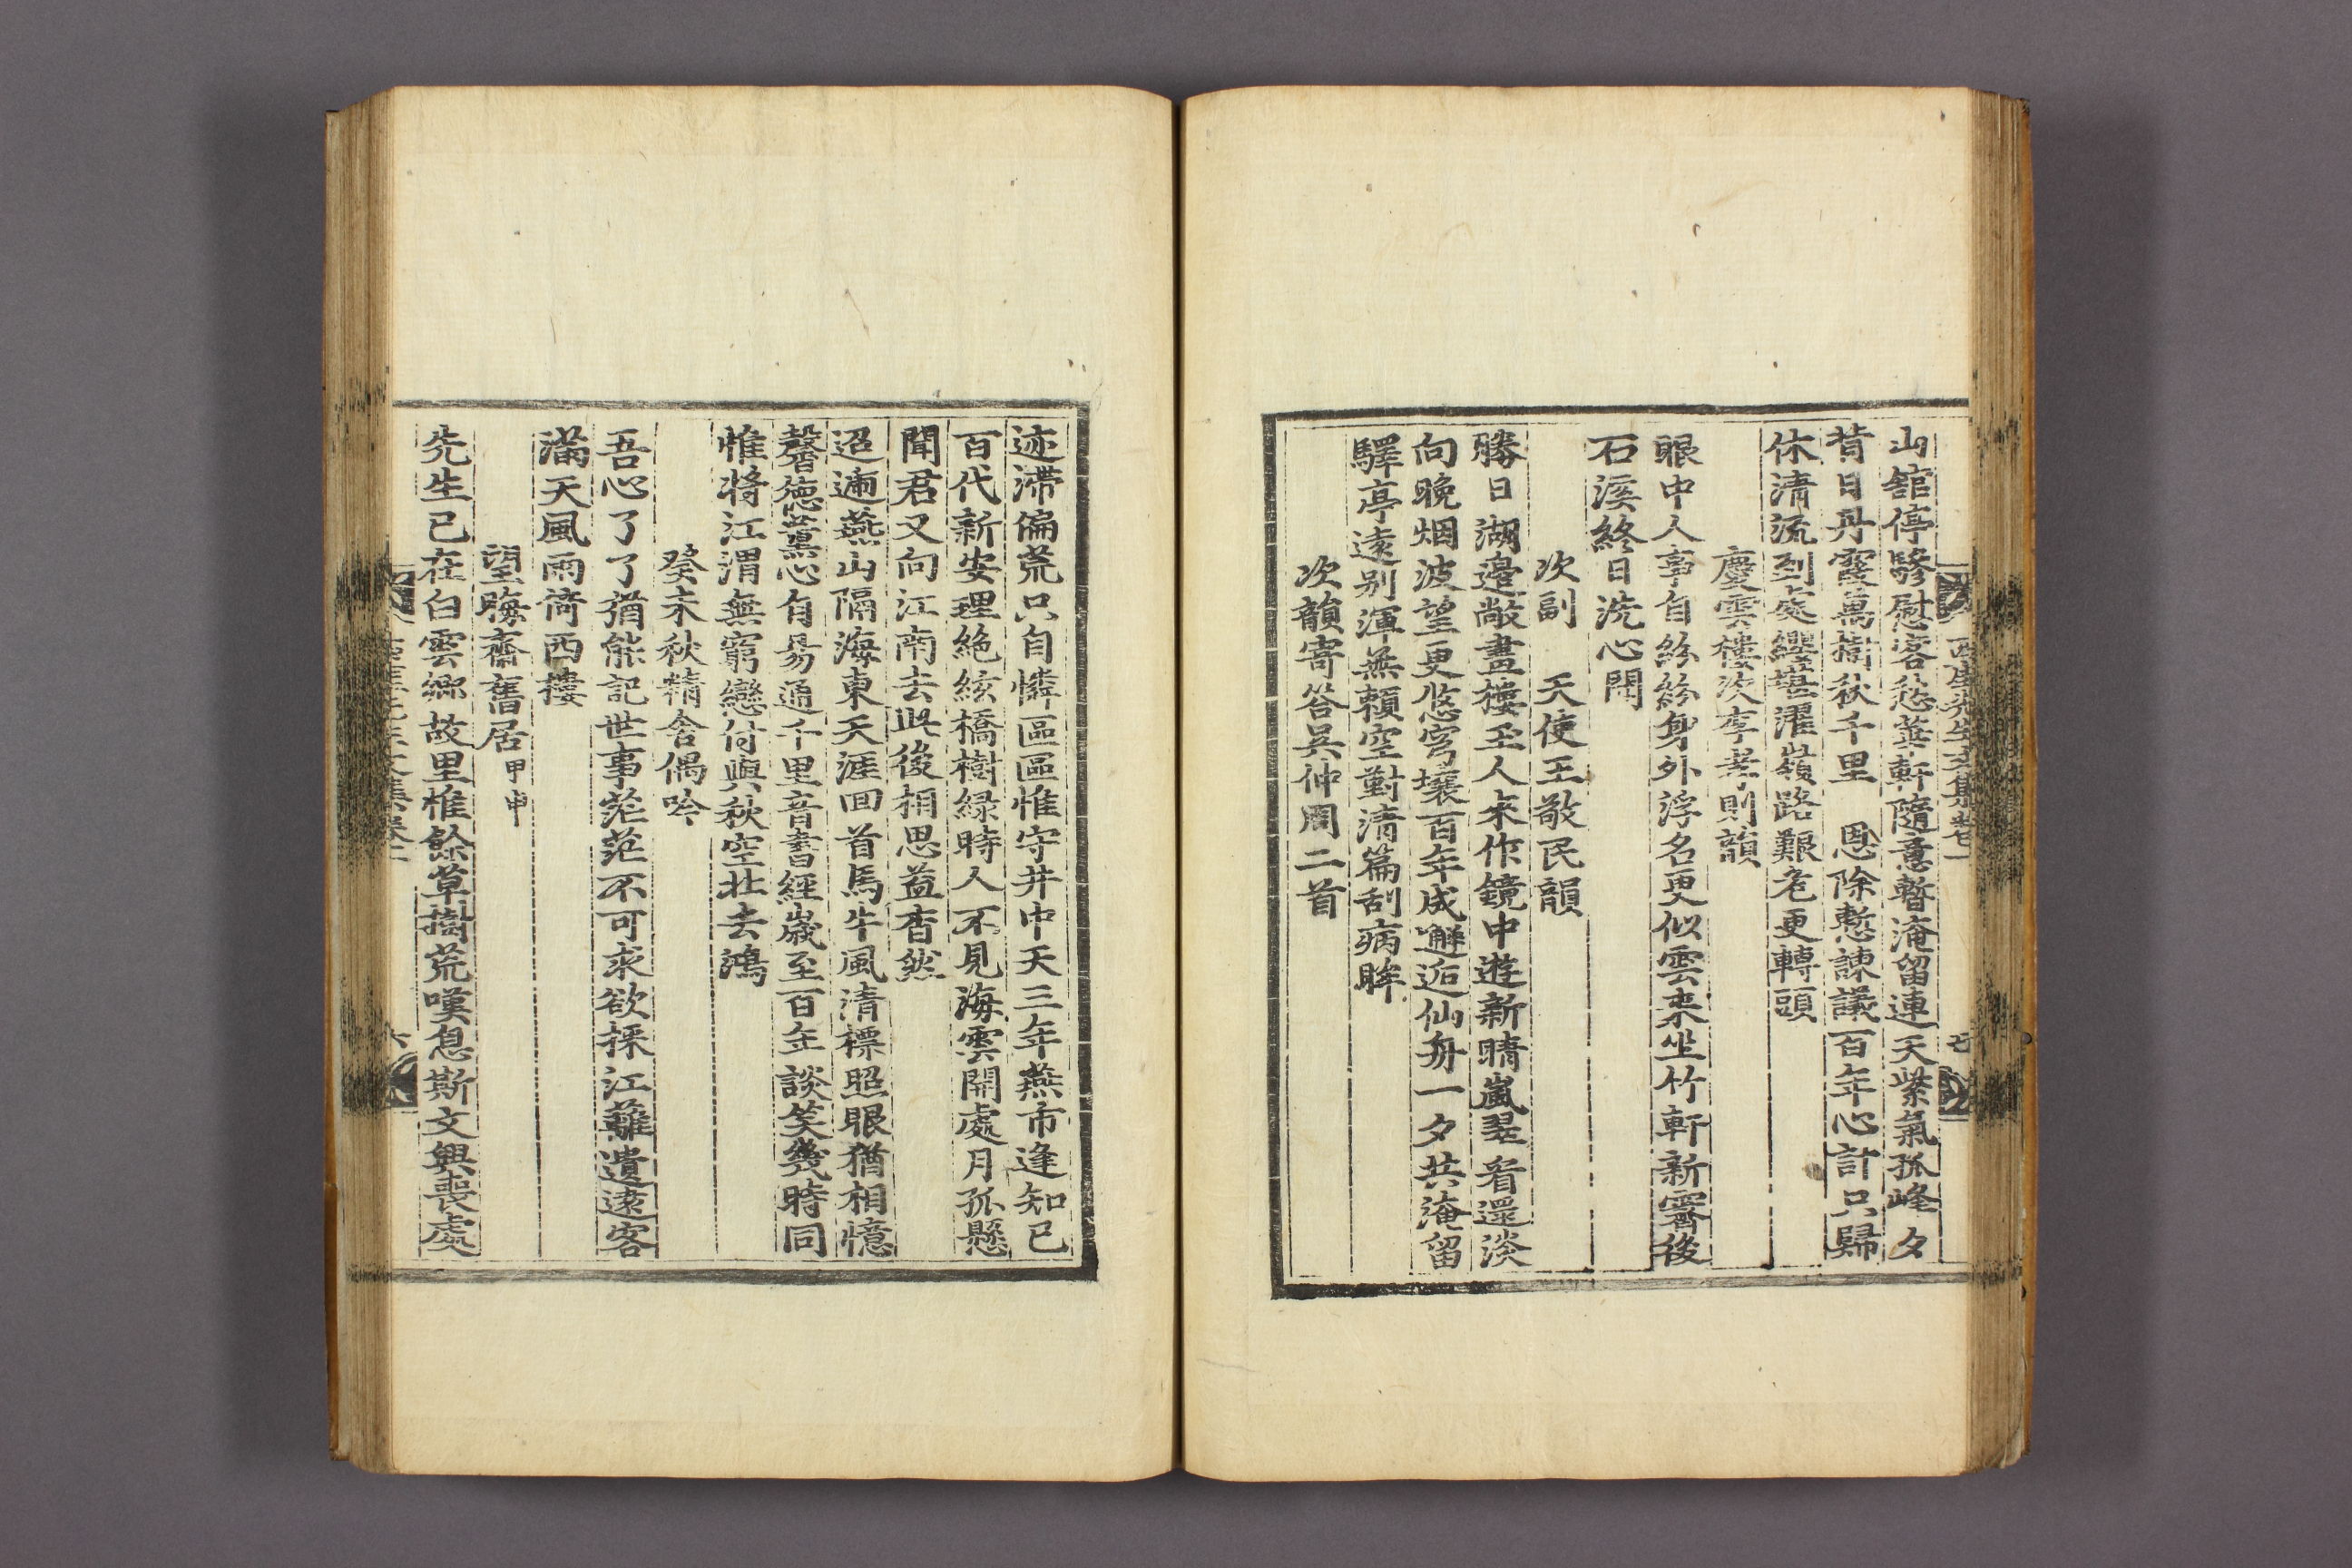 西厓先生文集卷一
七
山舘停驂慰客愁葵軒隨意暫淹留連天紫氣孤峰夕
昔日丹霞萬樹秋千里　恩除慙諫議百年心計只歸
休清流到處纓堪濯嶺路艱危更轉頭
慶雲樓次李孝則韻
眼中人事自紛紛身外浮名更似雲來坐竹軒新霽後
石溪終日洗心聞
次副　天使王敬民韻
勝日湖邊敞畫樓玉人來作鏡中遊新晴嵐翠看還淡
向晚烟波望更悠穹壤百年成邂逅仙舟一夕共淹留
驛亭遠别渾無賴空對清篇刮病眸
次韻寄答吳仲周二首
迹滯偏荒只自憐區區惟守井中天三年燕市逢知已
百代新安理絶絃橋樹緑時人不見海雲開處月孤懸
聞君又向江南去此後相思益杳然
迢遞燕山隔海東天涯回首馬牛風清標照眼猶相憶
馨德薰心自易通千里音書經歲至百年談笑幾時同
惟將江渭無窮戀付與秋空北去鴻
癸未秋精舍偶吟
吾心了了猶能記世事茫茫不可求欲採江蘺遺遠客
滿天風雨倚西樓
望晦齋舊居甲申
先生已在白雲鄉故里惟餘草樹荒嘆息斯文興喪處